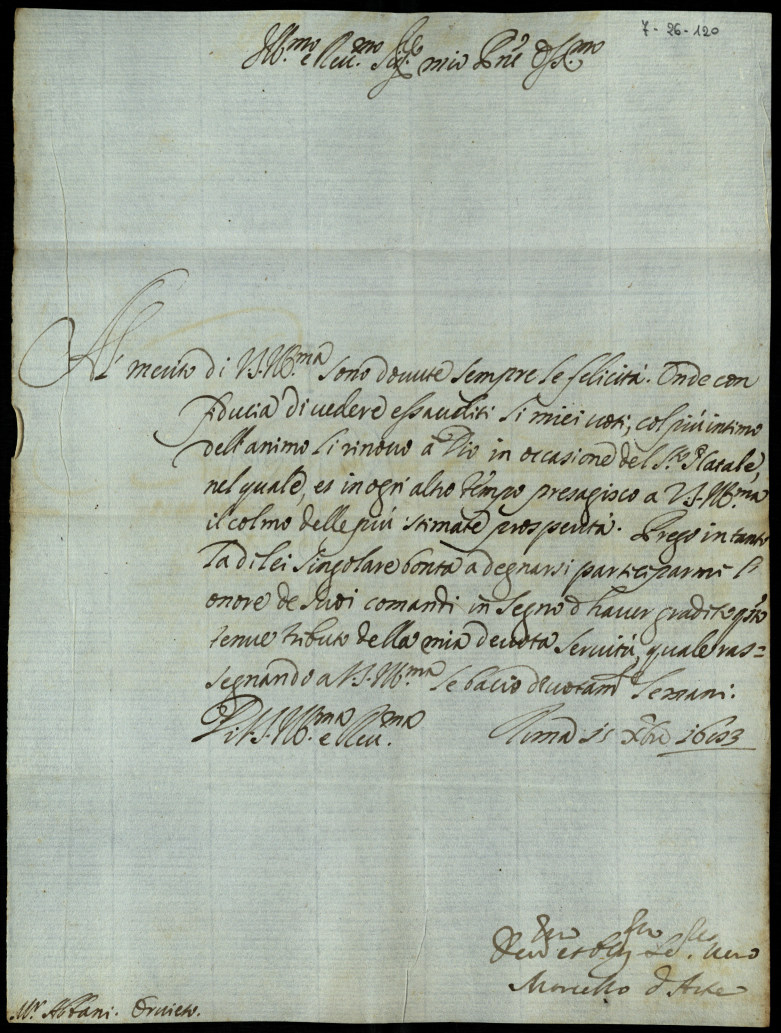 7-26-120
Ill.mo e Reu.mo Sig.re mio P.ne Oss.mo
Al merito di V.S. Ill.ma sono douute sempre le felicità. Onde con
fiducia di uedere essauditi li miei uoti, col più intimo
dell'animo li rinouo a Dio in occasione del S.to Natale,
nel quale, et in ogn'altro tempo presagisco a V.S. Ill.ma
il colmo delle più stimate prosperità. Prego intanto
la di lei singolare bontà a degnarsi participarmi l'
onore de suoi comandi in segno d'hauer gradito q.sto
tenue tributo della mia deuota seruitù, quale ras=
segnando a V.S. Ill.ma le bacio deuotam.te le mani.
Di V.S. Ill.ma e Reu.ma Roma
Marcello d'Aste
M.r Albani. Oruieto.